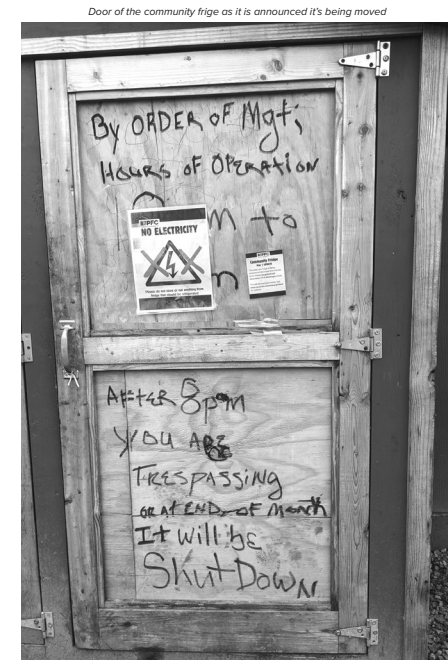 Door of the community frige as it is announced it's being moved
By ORDER OF Mgt;
HOURS OF OPERATION
M to
KIPFC
NO ELECTRICITY
Community Fridge
AFTER 8pm
YOU ARE
TRESPASSING
OR AT END OF MONTH
It will be
Shut DOWN